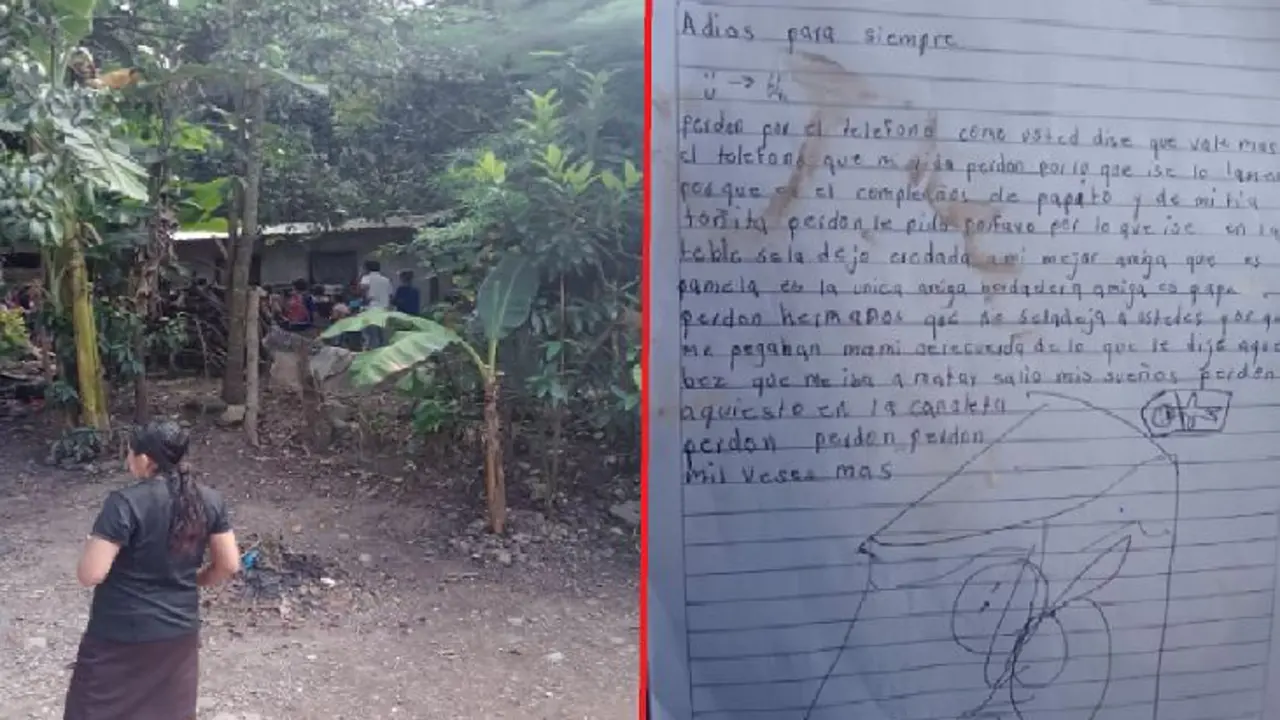 Adios para siempre
perdon por el telefono como usted dise que vale mas
el telefono que mi vida perdon por lo que ise lo
porque es el compleaños de papito y de mi tia
toñita perdon le pido porfavo por lo que ise en la
teble se la dejo eredada a mi mejor amiga que es
pamela es la unica amiga berdadera amiga
perdon hermanos que se
me pegaban mami de lo que le dije
bez que me iba a matar salio mis sueños perdon
aqui esto en la canaleta
perdon perdon perdon
mil veses mas